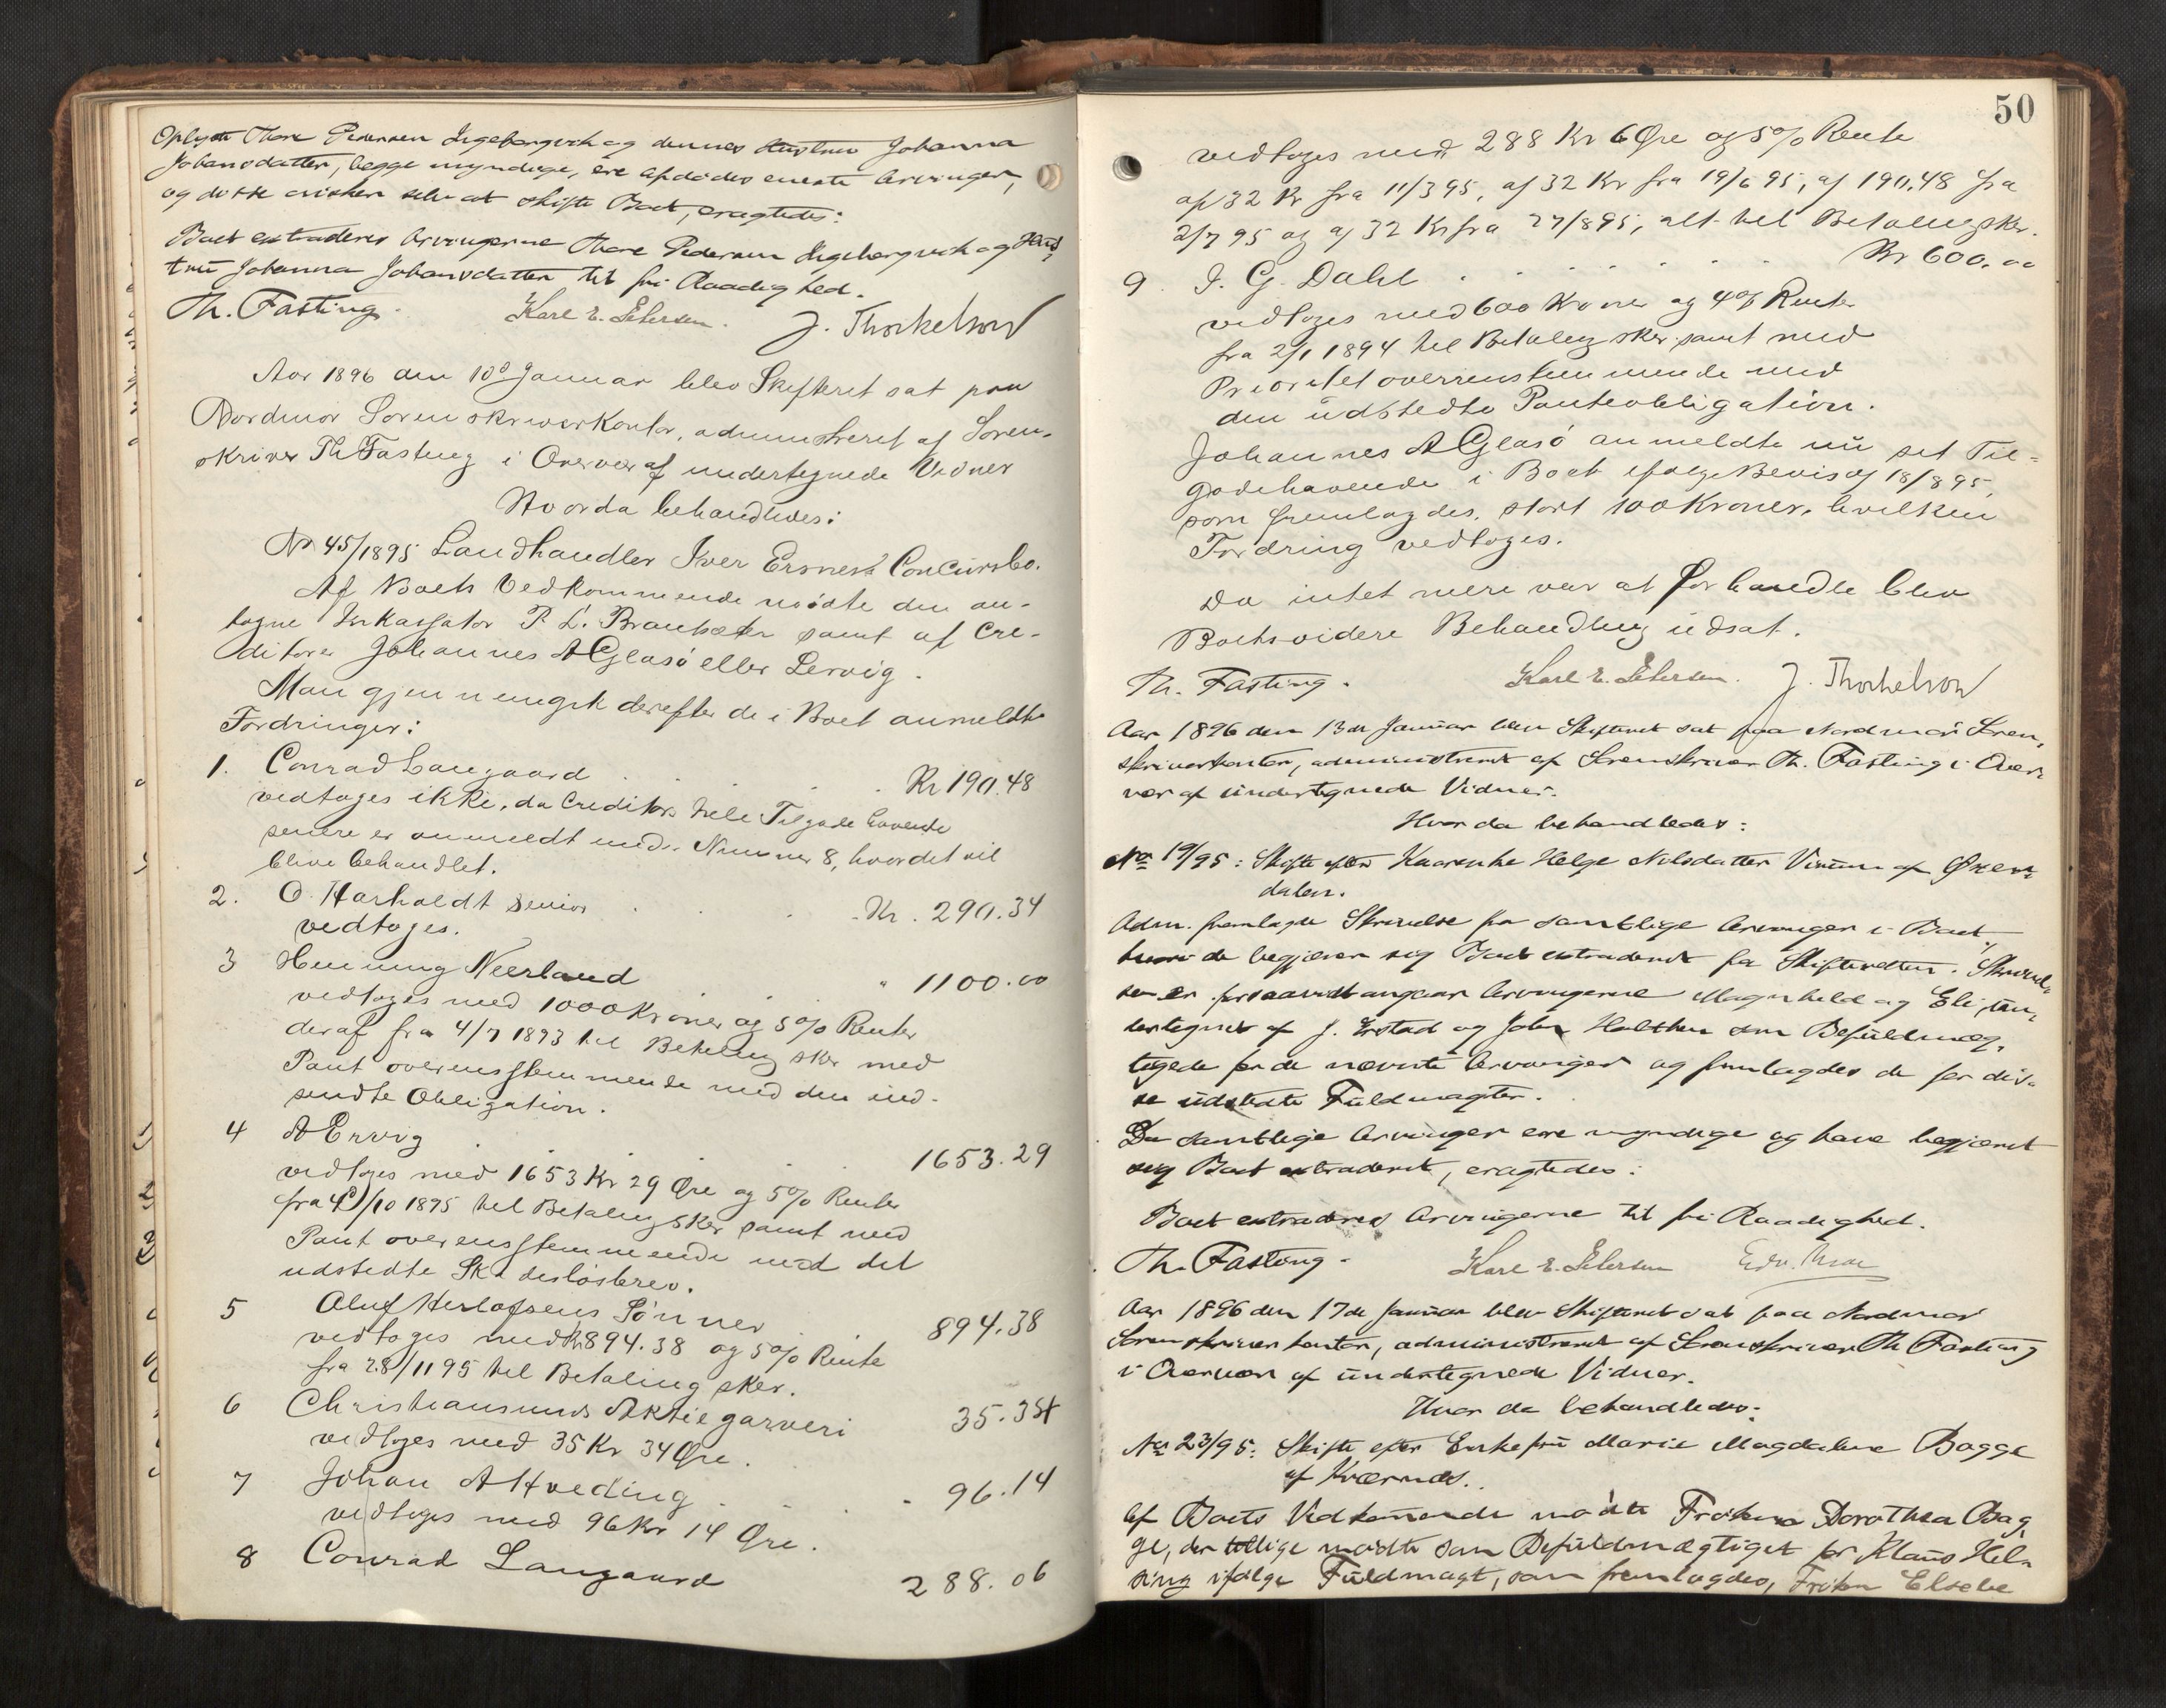 Oplyste Thore Pedersen Ingebergvik og dennes Hustru Johanna
Johansdatter, begge myndige, ere afdødes eneste Arvinger,
og disse ønsker selv at skifte Boet, eragtedes:
Boet extraderes Arvingerne Thore Pedersen Ingebergvik og Hus,
tru Johanna Johansdatter til fri Raadighed.
Th. Fasting. Karl E. Petersen. J. Thorkelson
Aar 1896 den 10d Januar blev Skifteret sat paa
Nordmør Sorenskriverkontor, administreret af Soren-
skriver Th Fasting i Overvær af undertegnede Vidner
Hvorda behandledes:
No 45/1895 Landhandler Iver Ersnes's Concursbo.
Af Boets Vedkommende mødte den an-
tagne Inkassator P. L. Brandsæter samt af Cre-
ditorer Johannes A Glasø eller Lervig.
Man gjennemgik derefter de i Boet anmeldte
Fordringer:
1. Conrad Langaard . . . Kr 190.48
vedtoges ikke, da Creditors hele Tilgodehavende
senere er anmeldt under Nummer 8, hvor det vil
blive behandlet.
2. O. Harholdt senior . . . Kr. 290.34
vedtoges.
3 Henning Neerland " 1100.00
vedtoges med 1000 Kroner og 5% Renter
deraf fra 4/7 1893 til Betaling sker med
Pant overensstemmende med den ind-
sendte Obligation.
4 A Ervig . . . 1653.29
vedtoges med 1653 Kr 29 Øre og 5% Renter
fra /10 1895 til Betaling sker samt med
Pant overensstemmende med det
udstedte Skadesløsbrev.
5 Oluf Herlofsens Sønner . . 894.38
vedtoges med Kr 894.38 og 5% Rente
fra 28/11 95 til Betaling sker.
6 Christianssunds Aktiegarveri 35.34
vedtoges med 35 Kr 34 Øre.
7 Johan A Hveding . . . 96.14
vedtoges med 96 Kr 14 Øre.
8 Conrad Langaard 288.06
50
vedtoges med 288 Kr 6 Øre og 5% Rente
af 32 Kr fra 11/3 95, af 32 Kr fra 19/6 95, af 190.48 fra
2/7 95 og af 32 Kr fra 27/8 95, alt til Betaling sker.
9. J. G. Dahl . . . . . . Kr 600.00
vedtoges med 600 Kroner og 4% Renter
fra 2/1 1894 til Betaling sker samt med
Prioritet overensstemmende med
den udstedte Panteobligation.
Johannes A Glasø anmeldte nu sit Til=
godehavende i Boet ifølge Bevis af 18/8 95,
som fremlagdes, stort 100 Kroner, hvilken
Fordring vedtoges.
Da intet mere var at forhandle blev
Boets videre Behandling udsat.
Th. Fasting. Karl E. Petersen. J. Thorkelson
Aar 1896 den 13de Januar blev Skifteret sat paa Nordmør Soren,
skriverkontor, administreret af Sorenskriver Th. Fasting i Over,
vær af undertegnede Vidner.
Hvor da behandledes:
No 19/95: Skifte efter Kaarenke Helge Nilsdatter Virum af Øxen,
dalen.
Adm. fremlagde Skrivelse fra samtlige Arvinger i Boet,
hvori de begjærer sig Boet extraderet fra Skifteretten. Skrivel,
sen er forsaavidt angaar Arvingerne Magnhild og Eli, un,
dertegnet af J. Erstad og John Halsten som Befuldmæg,
tigede for de nævnte Arvinger og fremlagdes de for dis-
se udstedte Fuldmagter.
Da samtlige Arvinger ere myndige og have begjæret
sig Boet extraderet, eragtedes:
Boet extraderes Arvingerne til fri Raadighed.
Th. Fasting. Karl E. Petersen Edv.
Aar 1896 den 17de Januar blev Skifteret sat paa Nordmør
Sorenskriverkontor, administreret af Sorenskriver Th Fasting
i Overvær af undertegnede Vidner.
Hvor da behandledes:
No 23/95: Skifte efter Enkefru Marie Magdalene Bagge
af Kværnes.
Af Boets Vedkommende mødte Frøken Dorothea Bag,
ge, der tillige mødte som Befuldmægtiget for Klaus Hel-
sing ifølge Fuldmagt, som fremlagdes, Frøken Elsebe